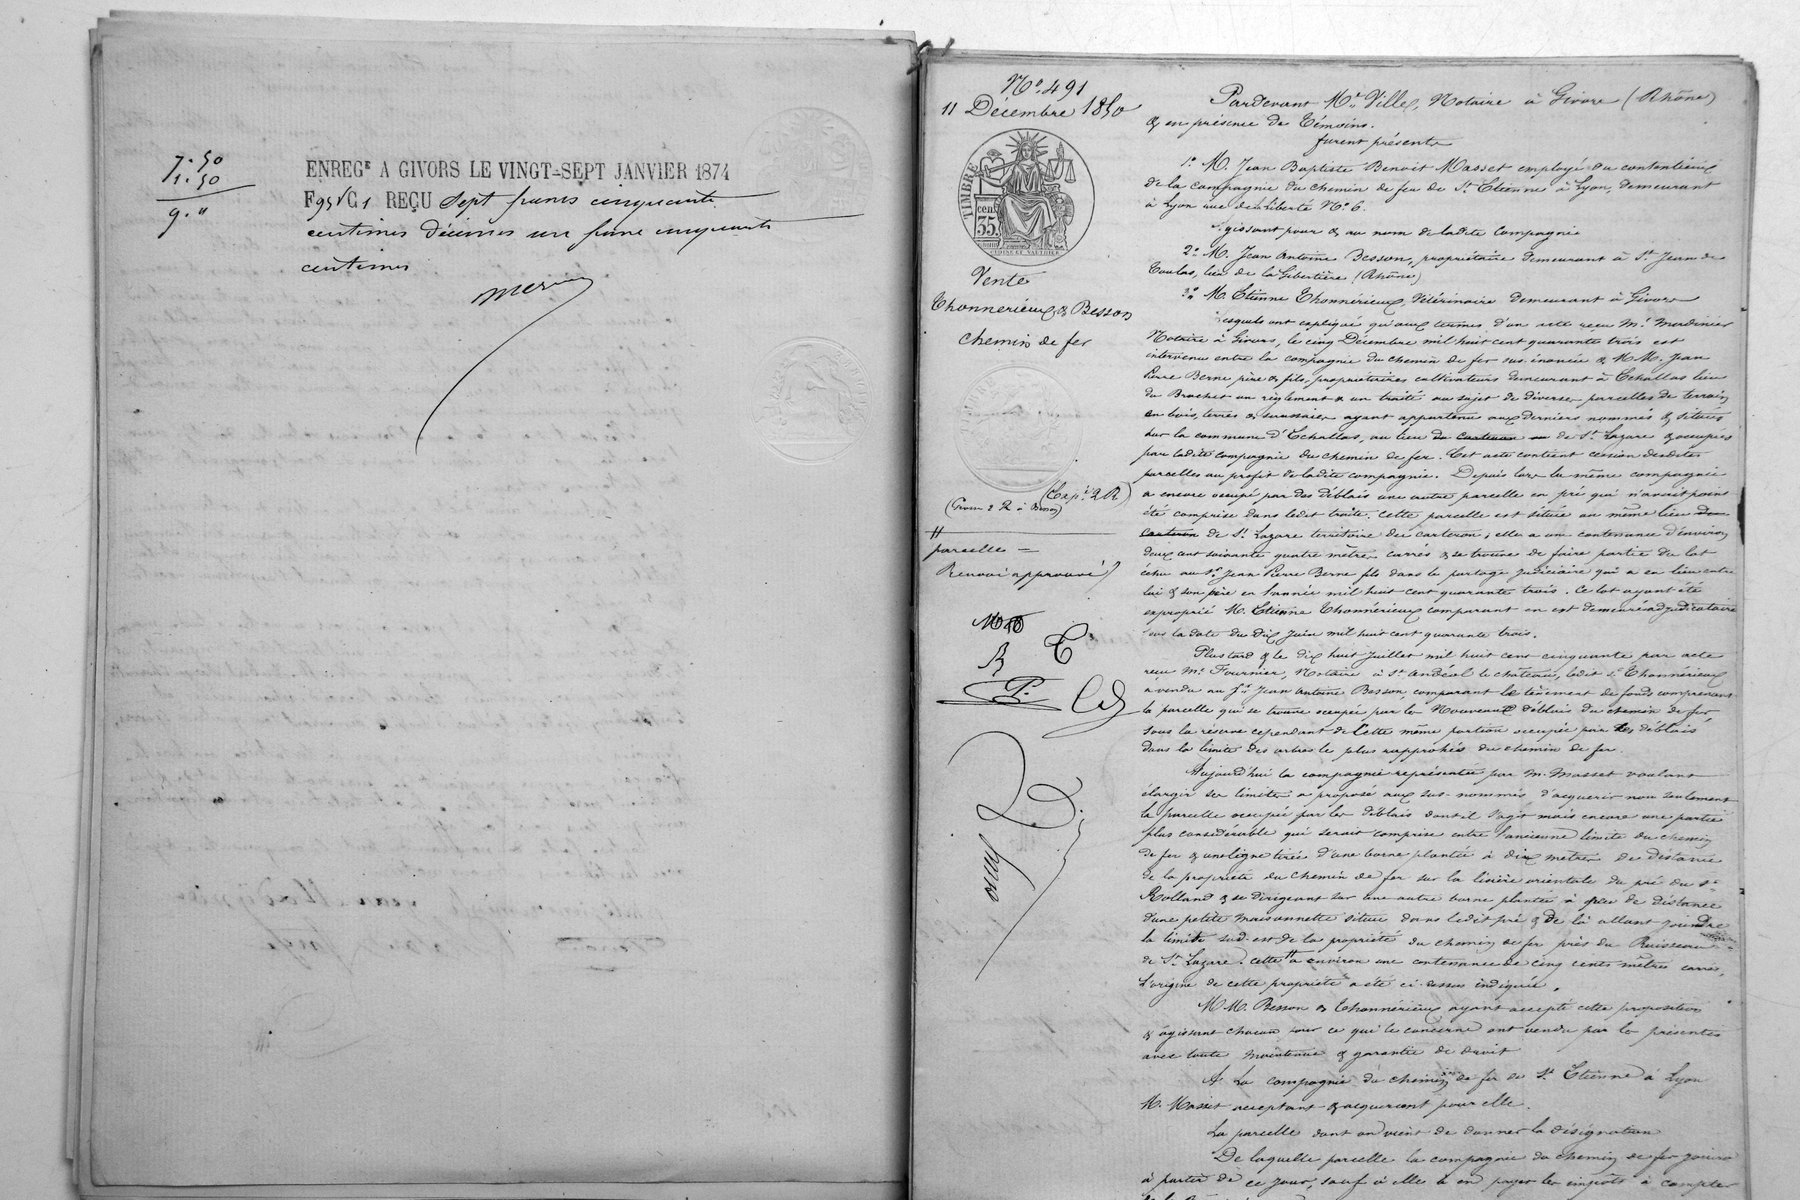 7. 50
1. 50
9. "
ENREGᵉ A GIVORS LE VINGT-SEPT JANVIER 1874
F 95 V C 1 REÇU sept francs cinquante
centimes décimes un franc cinquante
centimes
Nº. 491
11 Décembre 1850
TIMBRE
35 cen.
Vente
Thonnerieux & Besson
chemin de fer
(Copie 2 R)
(Grosse 2 R à Besson)
#
parcelle =
Renvoi approuvé
Pardevant Me. Ville, Notaire à Givors (Rhône)
& en présence de témoins.
furent présents
1º. M. Jean Baptiste Benoit Masset employé du contentieux
de la compagnie du chemin de fer de St. Etienne à Lyon, demeurant
à Lyon rue de la liberté Nº 6.
Agissant pour & au nom de ladite Compagnie
2º. M. Jean Antoine Besson, propriétaire demeurant à St Jean de
Toulas, lieu de la Libertière (Rhône)
3º M. Etienne Thonnérieux, Vétérinaire demeurant à Givors
Lesquels ont expliqué qu'aux termes d'un acte reçu Me. Mardinier
Notaire à Givors, le cinq Décembre mil huit cent quarante trois est
intervenu entre la compagnie du chemin de fer sus-énoncée & M.M. Jean
Pierre Berne père & fils, propriétaires cultivateurs demeurant à Echallas lieu
du Brachet un règlement & un traité au sujet de diverses parcelles de terrain
en bois, terres & brussaies ayant appartenu aux derniers nommés & situées
sur la commune d'Echallas, au lieu du carteron ou de St. Lazare & occupées
par ladite compagnie du chemin de fer. Cet acte contient cession desdites
parcelles au profit de ladite compagnie. Depuis lors la même compagnie
a encore occupé par des déblais une autre parcelle en pré qui n'avait point
été comprise dans ledit traité. cette parcelle est située au même lieu du
carteron de St. Lazare territoire du carteron; elle a une contenance d'environ
deux cent soixante quatre mètres carrés & se trouve de faire partie du lot
échu au Sr. Jean Pierre Berne fils dans le partage judiciaire qui a eu lieu entre
lui & son père en l'année mil huit cent quarante trois. Ce lot ayant été
exproprié M. Etienne Thonnérieux comparant en est demeuré adjudicataire
sous la date du dix Juin mil huit cent quarante trois.
Plus tard & le dix huit Juillet mil huit cent cinquante par acte
reçu Me. Fournier, Notaire à St. Andéol le château, ledit Sr. Thonnérieux
a vendu au Sr. Jean Antoine Besson, comparant le tènement de fonds comprenant
la parcelle qui se trouve occupée par les Nouveaux déblais du chemin de fer
sous la réserve cependant de cette même portion occupée par les déblais
dans la limite des arbres le plus rapprochés du chemin de fer.
Aujourd'hui la compagnie représentée par M. Masset voulant
élargir ses limites a proposé aux sus-nommés d'acquérir non seulement
la parcelle occupée par les déblais dont il s'agit mais encore une partie
plus considérable qui serait comprise entre l'ancienne limite du chemin
de fer & une ligne tirée d'une borne plantée à dix mètres de distance
de la propriété du chemin de fer sur la lisière orientale du pré du Sr.
Rolland & se dirigeant sur une autre borne plantée à peu de distance
d'une petite maisonnette située dans ledit pré & de là allant joindre
la limite sud-est de la propriété du chemin de fer près du Ruisseau
de St. Lazare. cette # a environ une contenance de cinq cents mètres carrés,
L'origine de cette propriété a été ci-dessus indiquée.
M.M. Besson & Thonnérieux ayant accepté cette proposition
& agissant chacun pour ce qui le concerne ont vendu par les présentes
avec toute maintenue & garantie de droit
A La compagnie du chemin de fer de St. Etienne à Lyon
M. Masset acceptant & acquérant pour elle.
La parcelle dont on vient de donner la désignation
De laquelle parcelle la compagnie du chemin de fer jouira
à partir de ce jour, sauf à elle à en payer les impôts à compter